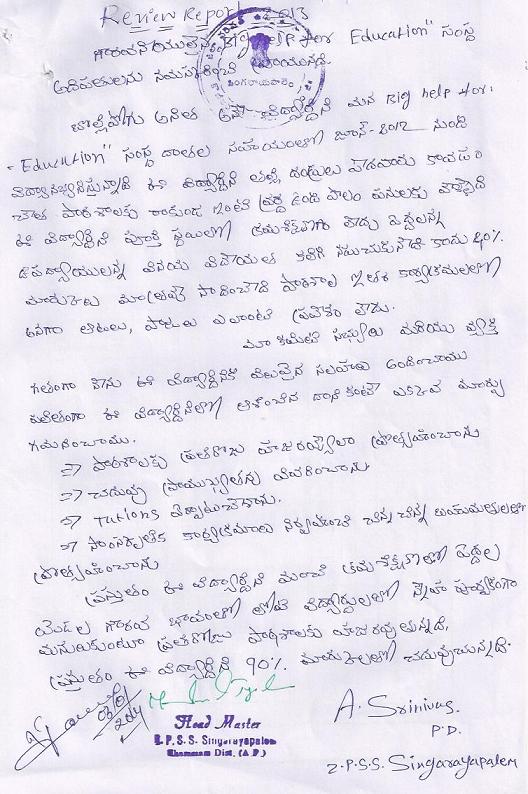 Review Report 2013
గౌరవనీయులైన Big help for Education" సంస్థ
అధిపతులను నమస్కరించి వ్రాయునది.
అనే విద్యార్థిని మన Big help for
Education" సంస్థ దాతల సహాయంతో జూన్-2012 నుండి
ఈ విద్యార్థిని తల్లి
చేత పాఠశాలకు రాకుండ ఇంటి వద్ద ఉండి పొలం పనులకు
ఈ విద్యార్థిని పూర్తి స్థాయిలో క్రమశిక్షణగా లేదు పెద్దలన్న
ఉపాధ్యాయులన్న వినయ విధేయత కలిగి కాదు 40%
మార్కులు మాత్రమే పాఠశాల ఇతర కార్యక్రమాలలో
అనగా ఆటలు, పాటలు ఎలాంటి ప్రవేశం లేదు.
మా కమిటి సభ్యులు మరియు వ్యక్తి
గతంగా నేను ఈ విద్యార్థినికి విలువైన సలహాలు అందించాము
ఫలితంగా ఈ విద్యార్థినిలో ఆశించిన దాని కంటే ఎక్కువ మార్పు
గమనించాము.
⇒ పాఠశాలకు ప్రతిరోజు హాజరయ్యేలా ప్రోత్సహించాను
⇒ చదువు ప్రాముఖ్యతను వివరించాను
⇒ Tutions ఏర్పాటుచేశాను.
⇒ సాంస్కృతిక కార్యక్రమాలు నిర్వహించి చిన్న చిన్న బహుమతులతో
ప్రోత్సహించాను
ప్రస్తుతం ఈ విద్యార్థిని మంచి క్రమశిక్షణతో పెద్దల
యెడల గౌరవ భావంతో తోటి విద్యార్థులలో స్నేహ పూర్వకంగా
మసులుకుంటూ ప్రతిరోజు పాఠశాలకు హాజరవుతున్నది.
ప్రస్తుతం ఈ విద్యార్థిని 90% మార్కులతో చదువుచున్నది.
Head Master
Z.P.S.S. Singarayapalem
Khammam Dist. (A.P)
A. Srinivas.
P.D.
Z.P.S.S. Singarayapalem